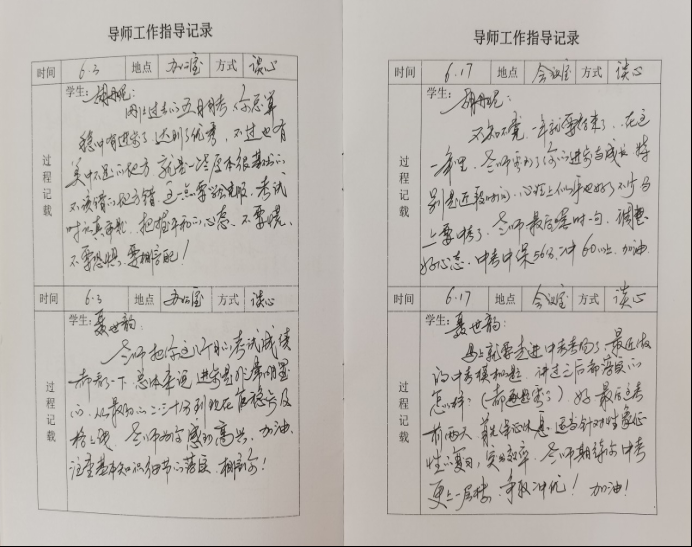 导师工作指导记录
时间 6.3 地点 办公室 方式 谈心
过程记载
学生：胡丹妮：
刚过去的五月月考，你总算
稳中有进步了，达到了优秀，不过也有
美中不足的地方，就是一些原本很基础的
不该错的地方错，这一点要学会克服，考试
时认真审题，把握平和的心态，不要慌，
不要恐惧，要相信自己！
时间 6.3 地点 办公室 方式 谈心
过程记载
学生：聂世韵：
老师把你这几个月的考试成绩
都看了一下，总体来说，进步是非常明显
的，从最初的二、三十分到现在能稳定及
格上线，老师为你感到高兴，加油，
注重基本知识细节的落实，相信你！
导师工作指导记录
时间 6.17 地点 会议室 方式 谈心
过程记载
学生：胡丹妮：
不知不觉，一年就要结束了，在这
一年里，老师看到了你的进步与成长，特
别是近段时间，心理上似乎也好了不少，马
上要中考了，老师最后唠叨一句，调整
好心态，中考中保56分，冲60以上，加油
时间 6.17 地点 会议室 方式 谈心
过程记载
学生：聂世韵：
马上就要走进中考考场了，最近做
的中考模拟题，评过之后都落实的
怎样？（都过关了）好，最后这考
前两天，首先保证休息，适当针对性象征
性的复习，实效率，老师期待你中考
更上一层楼，争取冲优！加油！